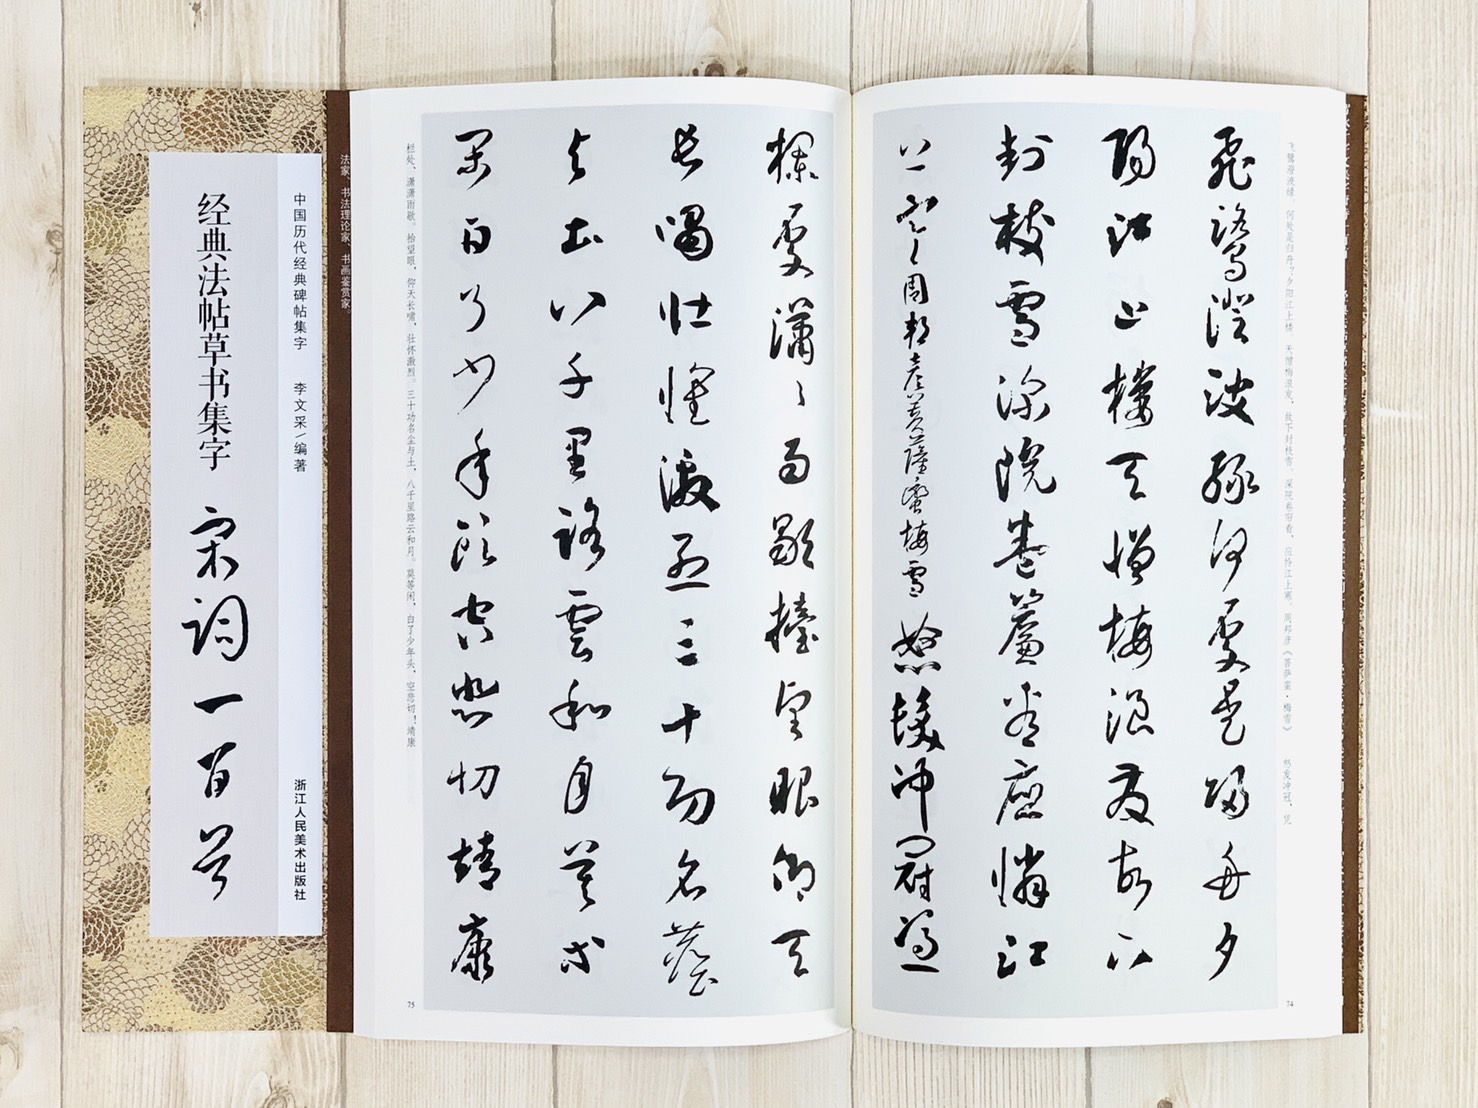 飞鹭澄波绿。何处是归舟?夕阳江上楼 天憎梅浪发,故下封枝雪。深院卷帘看,应怜江上寒。周邦彦《菩萨蛮·梅雪》 怒发冲冠,凭
飛鷺澄波綠何處是歸舟夕
陽江上樓天憎梅浪發故下
封枝雪深院卷簾看應憐江
上寒 周邦彥菩薩蠻梅雪 怒髮沖冠憑
74
欄處瀟瀟雨歇擡望眼仰天
長嘯壯懷激烈三十功名塵
與土八千里路雲和月莫等
閑白了少年頭空悲切靖康
栏处、潇潇雨歇。抬望眼、仰天长啸,壮怀激烈。三十功名尘与土,八千里路云和月。莫等闲、白了少年头,空悲切!靖康
75
法家、书法理论家、书画鉴赏家。
中国历代经典碑帖集字 李文采/编著 浙江人民美术出版社
经典法帖草书集字 宋词一百首